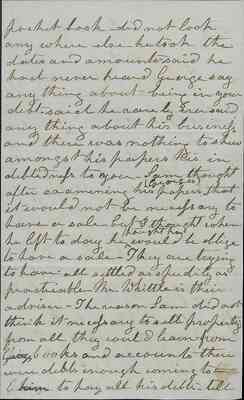 pocket book did not look
any where else he took the
dates and amounts said he
had never heard George say
any thing about being in your
debt said he rarely ever said
any thing about his business
and there was nothing to shew
amongst his papers his in
debtedness to you - Sam thought
after examining George's papers that
it would not be necessary to
have a sale but I thought when
he left to day he thought they would be oblige
to have a sale - They are trying
to have all settled as speedily as
practicable Mr Whittle is their
adviser - The reason Sam did not
think it necessary to sell property
from all they could learn from
George's books and accounts there
were debts enough coming to
him to pay all his debts till